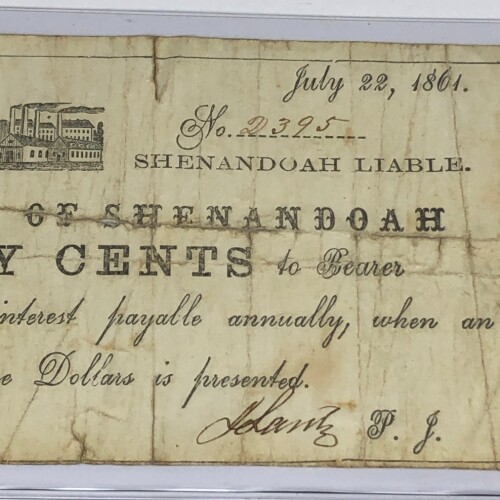 July 22, 1861.
No. 2395
SHENANDOAH LIABLE.
OF SHENANDOAH
Y CENTS to Bearer
interest payable annually, when an
e Dollars is presented.
P. J.